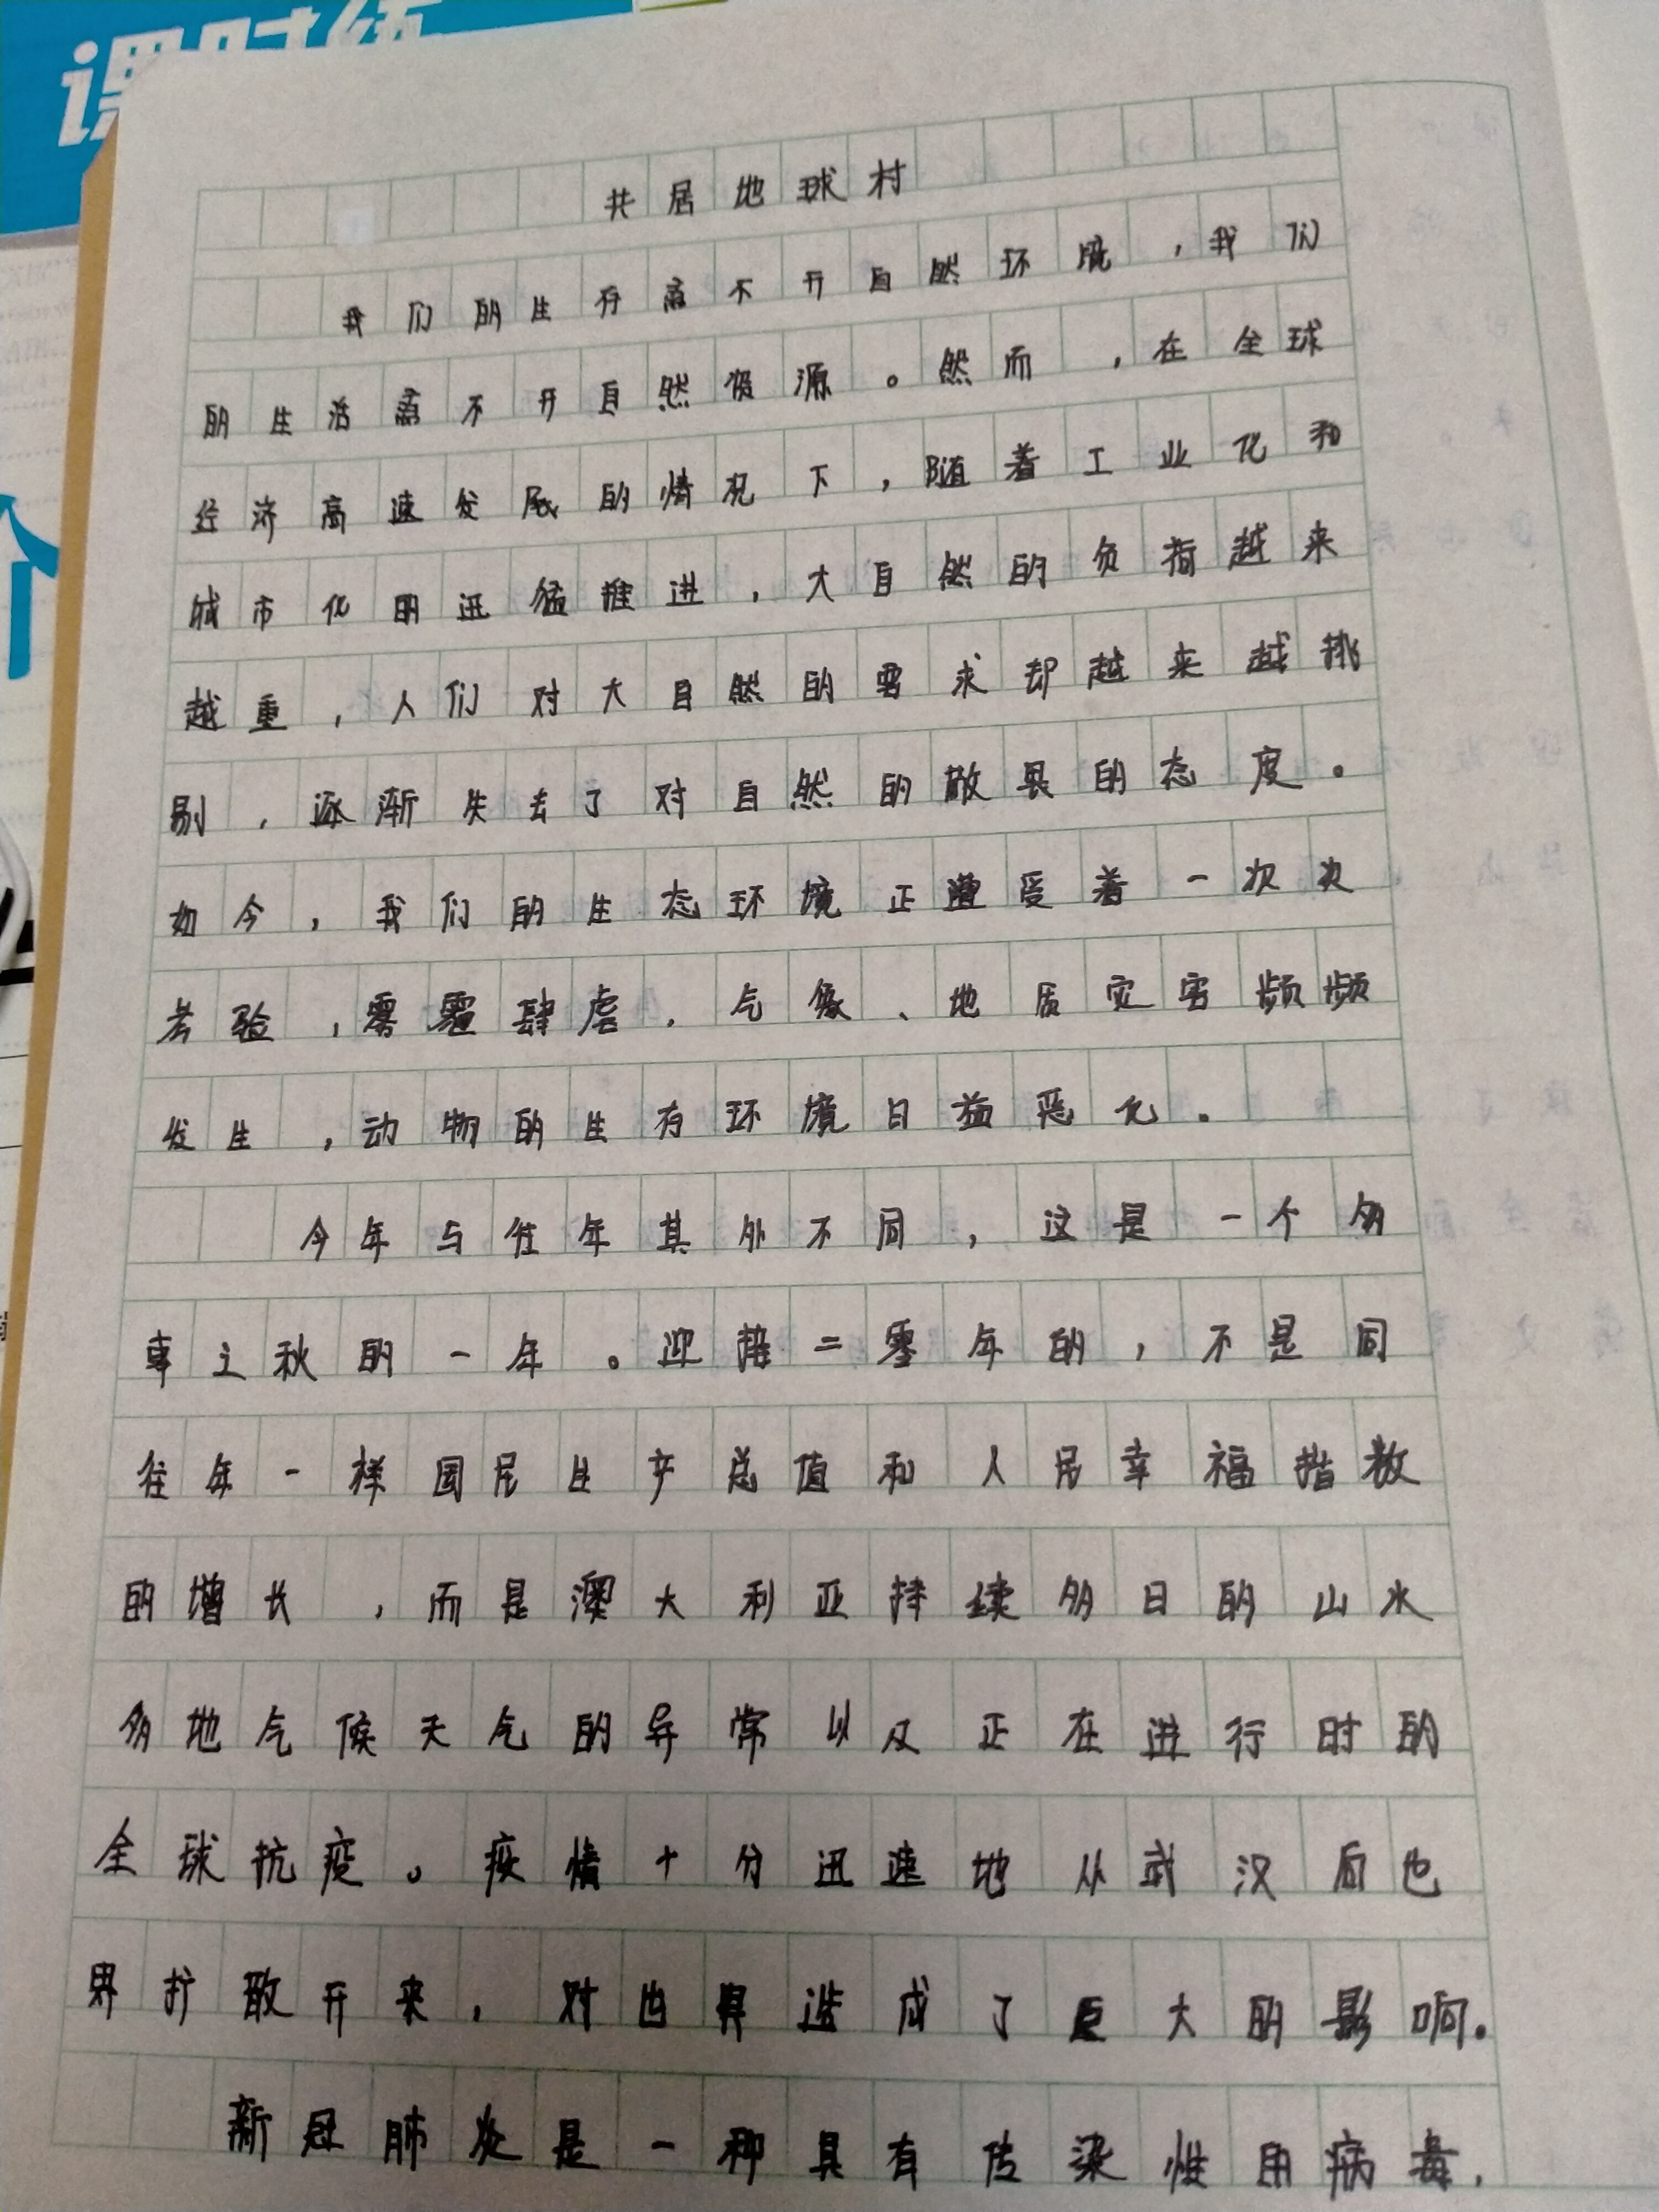 课时练
个
共居地球村
我们的生存离不开自然环境，我们
的生活离不开自然资源。然而，在全球
经济高速发展的情况下，随着工业化和
城市化的迅猛推进，大自然的负荷越来
越重，人们对大自然的需求却越来越挑
剔，逐渐失去了对自然的敬畏的态度。
如今，我们的生态环境正遭受着一次次
考验，雾霾肆虐，气象、地质灾害频频
发生，动物的生存环境日益恶化。
今年与往年其外不同，这是一个多
事之秋的一年。迎接二零年的，不是同
往年一样国民生产总值和人民幸福指数
的增长，而是澳大利亚持续多日的山火
多地气候天气的异常以及正在进行时的
全球抗疫。疫情十分迅速地从武汉向世
界扩散开来，对世界造成了巨大的影响。
新冠肺炎是一种具有传染性用病毒，